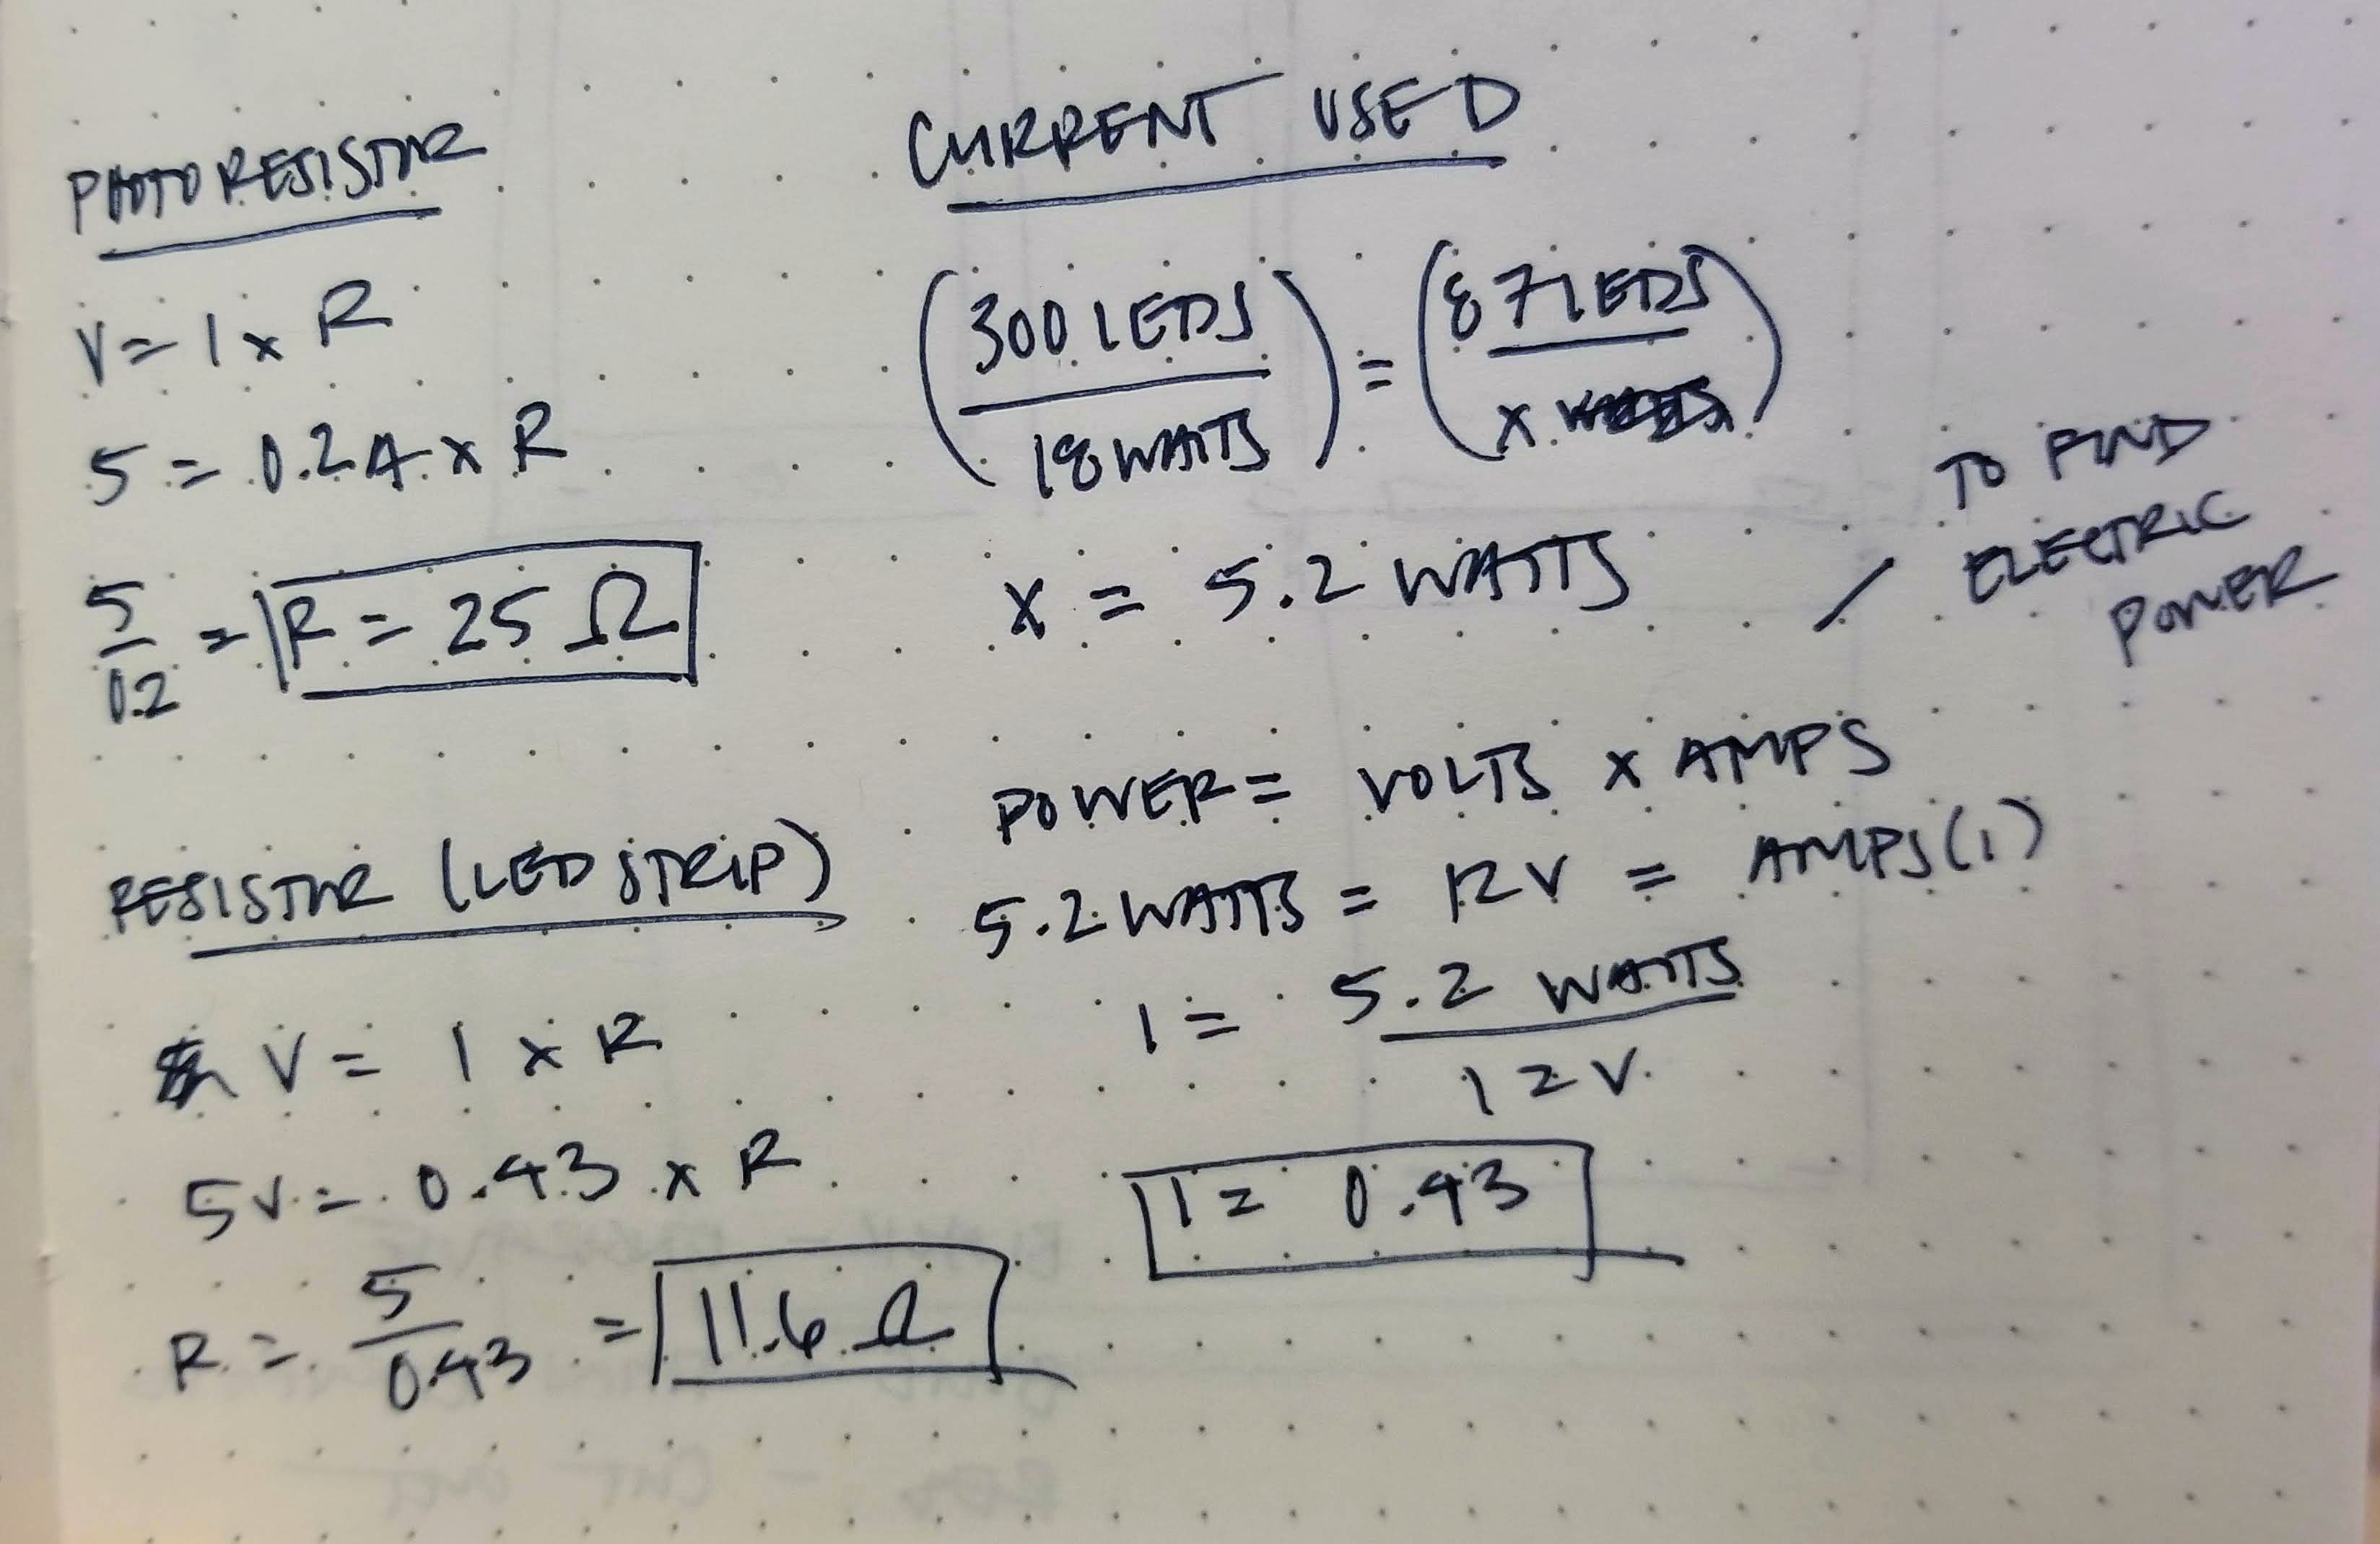 PHOTORESISTOR
V = I x R
5 = 0.2A x R
5
0.2
= R = 25 Ω
RESISTOR (LED STRIP)
V = I x R
5V = 0.43 x R
R = 5
0.43
= 11.6 Ω
CURRENT USED
(300 LEDS
18 WATTS) = (87 LEDS
x WATTS)
X = 5.2 WATTS
/ TO FIND
ELECTRIC
POWER
POWER = VOLTS x AMPS
5.2 WATTS = 12V = AMPS(I)
I = 5.2 WATTS
12V
I = 0.43